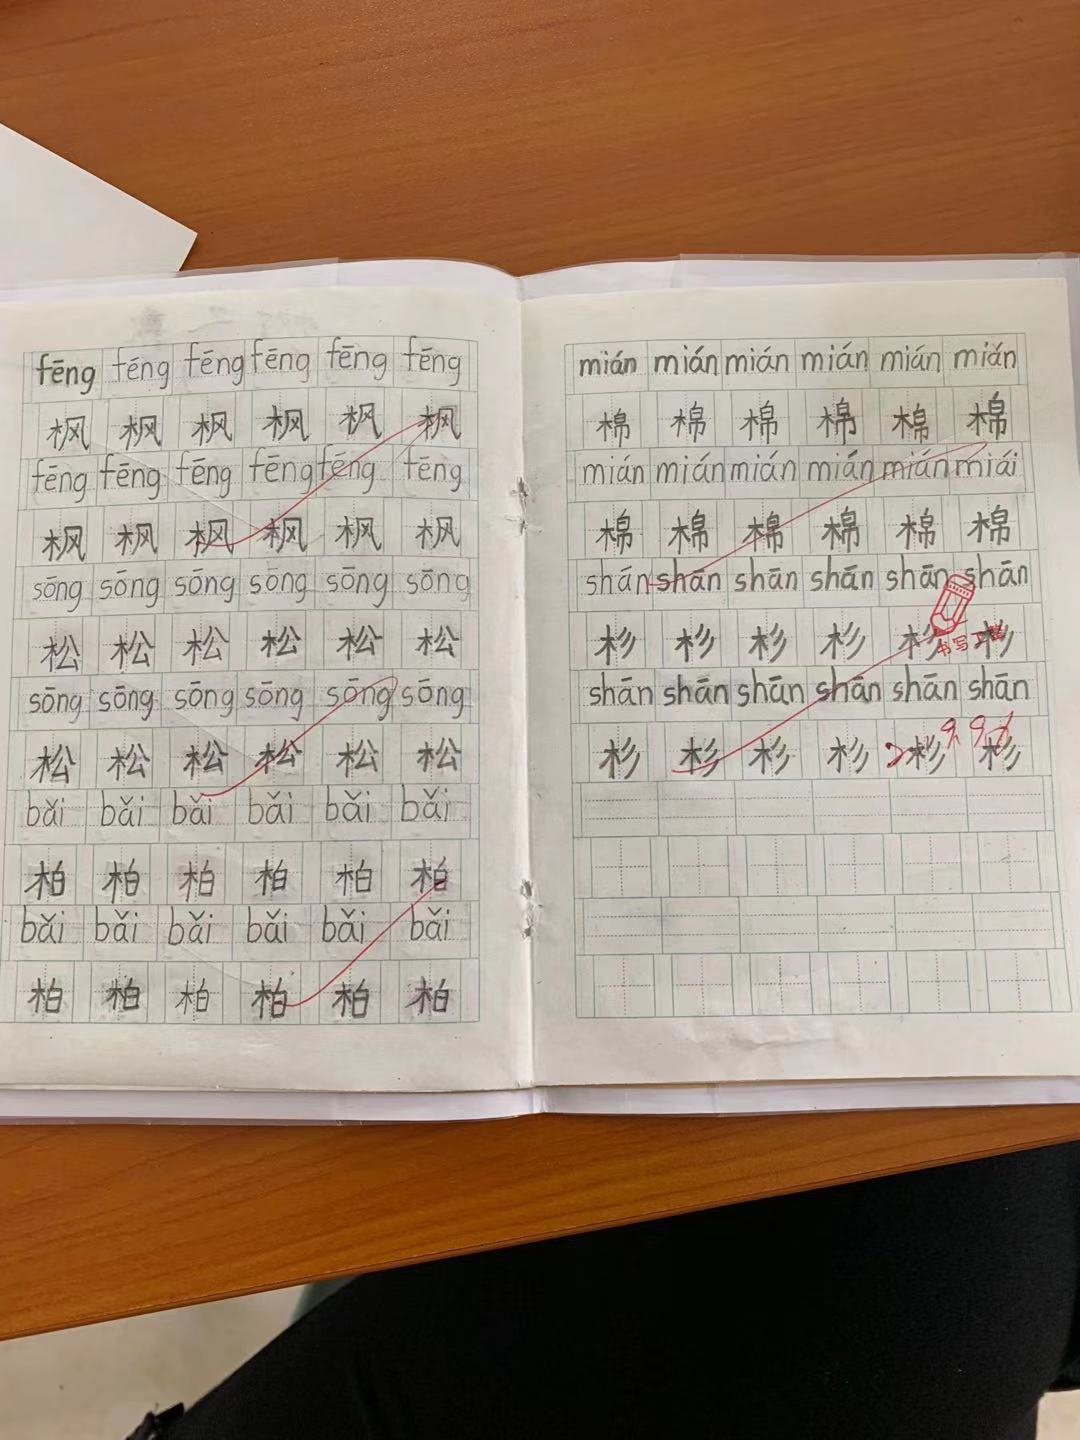 fēng fēng fēng fēng fēng fēng
枫 枫 枫 枫 枫 枫
fēng fēng fēng fēng fēng fēng
枫 枫 枫 枫 枫 枫
sōng sōng sōng sōng sōng sōng
松 松 松 松 松 松
sōng sōng sōng sōng sōng sōng
松 松 松 松 松 松
bǎi bǎi bǎi bǎi bǎi bǎi
柏 柏 柏 柏 柏 柏
bǎi bǎi bǎi bǎi bǎi bǎi
柏 柏 柏 柏 柏 柏
mián mián mián mián mián mián
棉 棉 棉 棉 棉 棉
mián mián mián mián mián miái
棉 棉 棉 棉 棉 棉
shān shān shān shān shān shān
杉 杉 杉 杉 杉 杉
书写工整
shān shān shān shān shān shān
杉 杉 杉 杉 杉 杉